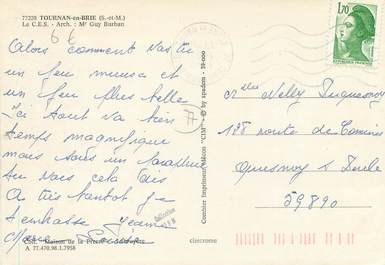 77220 TOURNAN-en-BRIE (S.-et-M.)
Le C.E.S. - Arch. : Mr Guy Burban
6 €
Alors comment vas tu
un peu mieux et
un peu plus belle
Ici tout va bien
temps magnifique
mais sous un
au vas cela
A très bientôt je
t'embrasse Jeanne
Marie Louise
Coll. Maison de la Presse
A 77.470.98.1.7958
Combier Imprimeur Mâcon "CIM" - © by spadem - 39-000
cimcrome
1,70
RÉPUBLIQUE FRANÇAISE
Melle Nelly Duquesnoy
128 route de Comines
Quesnoy s Deule
59890